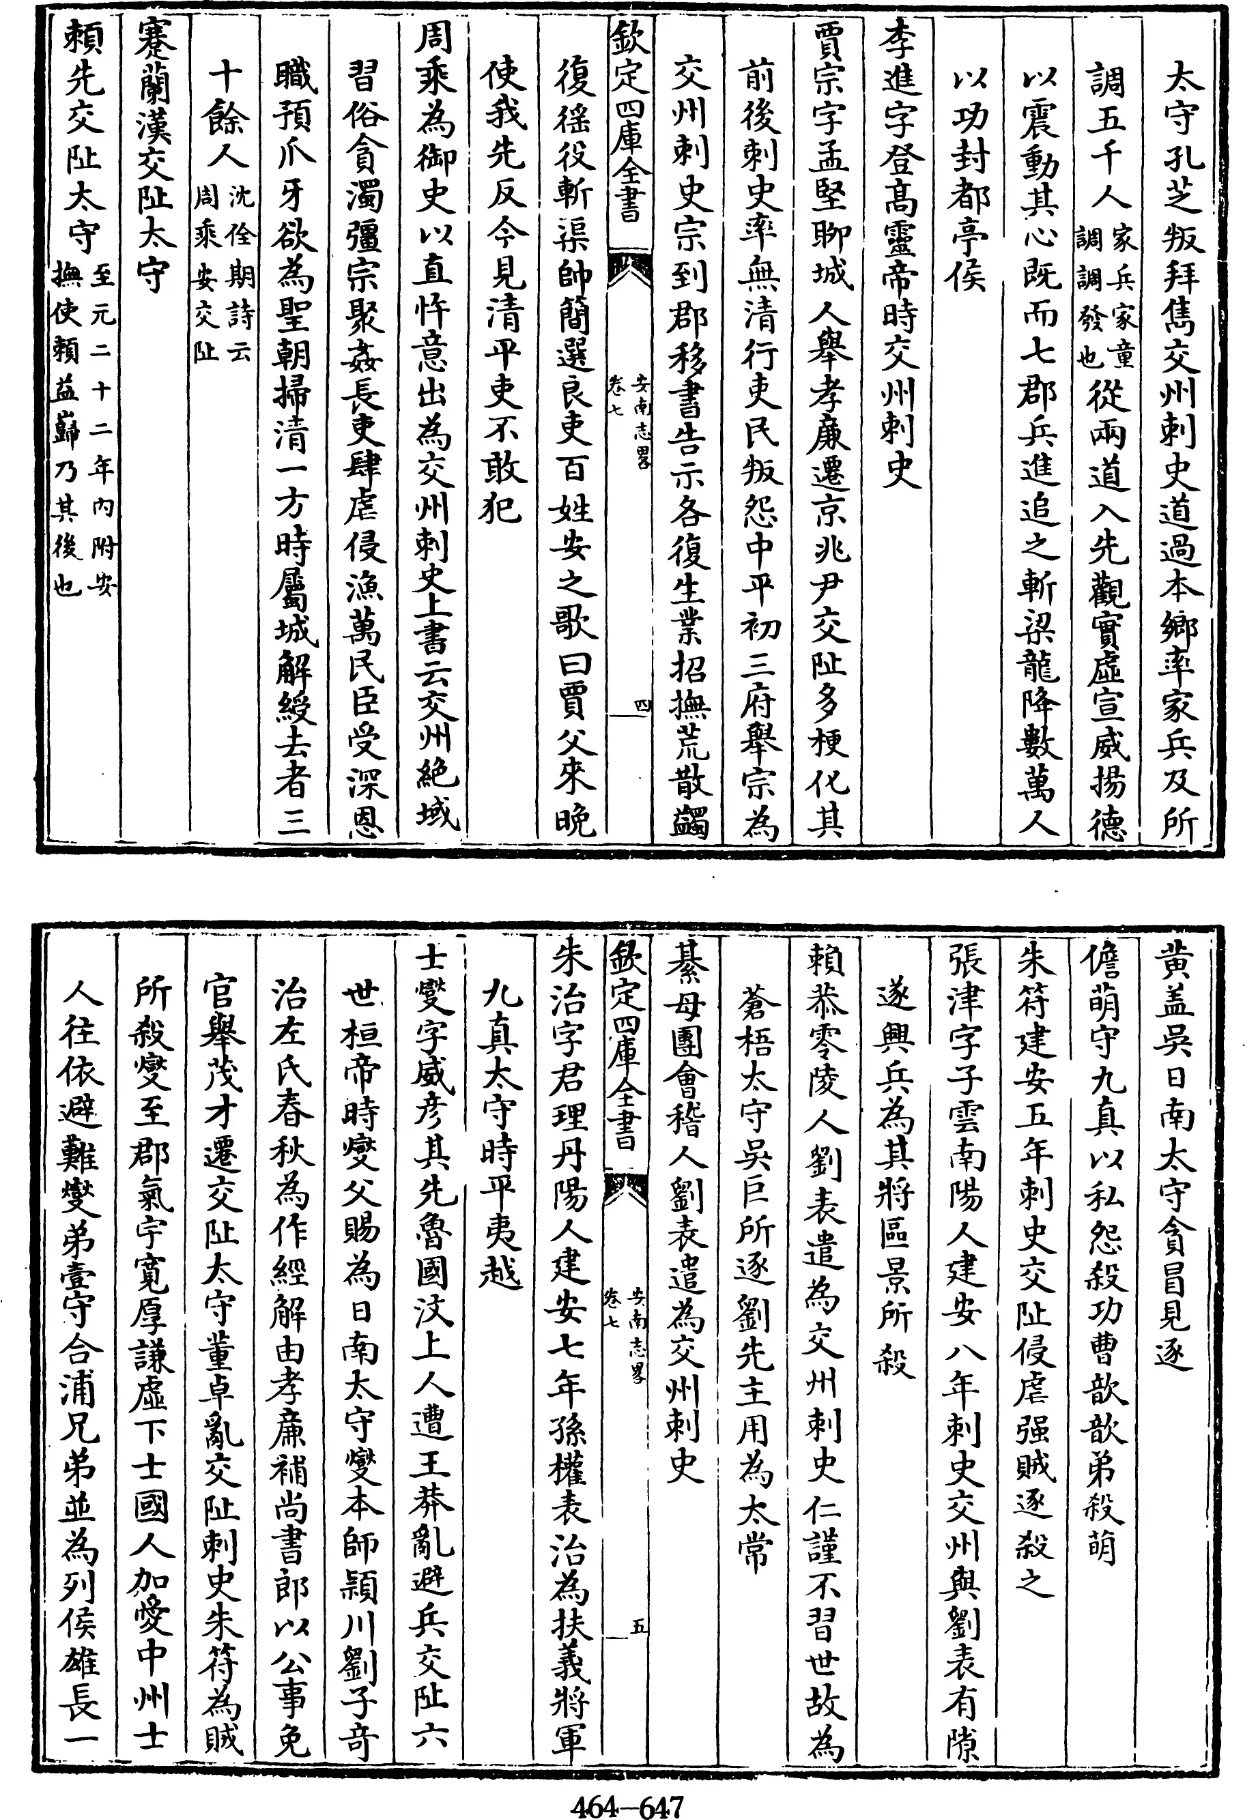 太守孔芝叛拜雋交州刺史道過本鄉率家兵及所
調五千人家兵家童調調發也從兩道入先觀實虛宣威揚德
以震動其心既而七郡兵進追之斬梁龍降數萬人
以功封都亭侯
李進字登高靈帝時交州刺史
賈宗字孟堅聊城人舉孝廉遷京兆尹交阯多梗化其
前後刺史率無清行吏民叛怨中平初三府舉宗為
交州刺史宗到郡移書告示各復生業招撫荒散蠲
欽定四庫全書 安南志畧 卷七 四
復徭役斬渠帥簡選良吏百姓安之歌曰賈父來晚
使我先反今見清平吏不敢犯
周乘為御史以直忤意出為交州刺史上書云交州絶域
習俗貪濁彊宗聚姦長吏肆虐侵漁萬民臣受深恩
職預爪牙欲為聖朝掃清一方時屬城解綬去者三
十餘人沈佺期詩云周乘安交阯
蹇蘭漢交阯太守
頼先交阯太守至元二十二年內附安撫使頼益歸乃其後也
黄盖吳日南太守貪冒見逐
儋萌守九真以私怨殺功曹歆歆弟殺萌
朱符建安五年刺史交阯侵虐强賊逐殺之
張津字子雲南陽人建安八年刺史交州與劉表有隙
遂興兵為其將區景所殺
賴恭零陵人劉表遣為交州刺史仁謹不習世故為
蒼梧太守吳巨所逐劉先主用為太常
綦母團會稽人劉表遣為交州刺史
欽定四庫全書 安南志畧 卷七 五
朱治字君理丹陽人建安七年孫權表治為扶義將軍
九真太守時平夷越
士燮字威彦其先魯國汶上人遭王莽亂避兵交阯六
世桓帝時燮父賜為日南太守燮本師潁川劉子竒
治左氏春秋為作經解由孝廉補尚書郎以公事免
官舉茂才遷交阯太守董卓亂交阯刺史朱符為賊
所殺燮至郡氣宇寛厚謙虛下士國人加愛中州士
人往依避難燮弟壹守合浦兄弟並為列侯雄長一
464-647